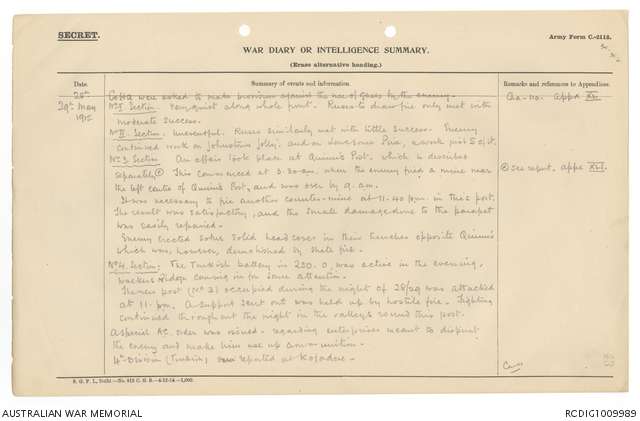 SECRET.
Army Form C.-2118.
WAR DIARY OR INTELLIGENCE SUMMARY.
(Erase alternative heading.)
Date.
Summary of events and information.
Remarks and references to Appendices.
28th
Corps were asked to make provision against the use of gases by the enemy.
appx XL.
29th May
1915
No I Section. Very quiet along whole front. Ruses to draw fire only met with
moderate success.
No II. Section. Uneventful. Ruses similarly met with little success. Enemy
continued work on Johnston's Jolly, and on Lonesome Pine, a work just S of it.
No 3 Section An affair took place at Quinn's Post, which is described
separately. This commenced at 3.30 am. when the enemy fired a mine near
see report. appx XLI.
the left centre of Quinn's Post, and was over by 9. am.
It was necessary to fire another counter-mine at 11.40 pm. in this post.
The result was satisfactory, and the small damage done to the parapet
was easily repaired.
Enemy erected some solid head cover in their trenches opposite Quinn's
which was, however, demolished by shell fire.
No 4. Section. The Turkish battery in 250. O, was active in the evening,
Walkers Ridge coming in for some attention.
The new post (No 3) occupied during the night of 28/29 was attacked
at 11. pm. A support sent out was held up by hostile fire. Fighting
continued throughout the night in the valleys round this post.
A special A.C. order was issued - regarding enterprises meant to disquiet
the enemy and make him use up ammunition.
4th Division (Turkish) reported at Kojadere.
S. G. P. I., Delhi
AUSTRALIAN WAR MEMORIAL
RCDIG1009989